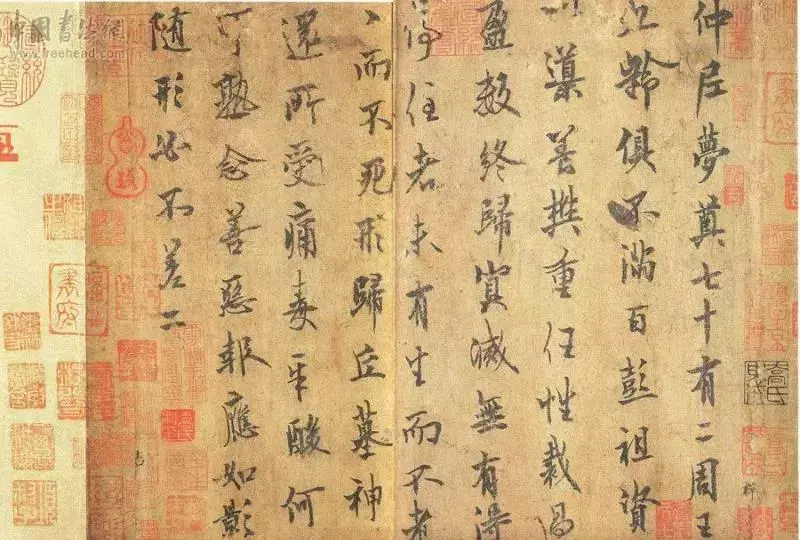 仲尼夢奠七十有二周王
九齡俱不滿百彭祖資
導養樊重任性裁過
盈數終歸冥滅無有得
停住者未有生而不老
而不死形歸丘墓神
還所受痛毒辛酸何
可熟念善惡報應如影
隨形必不差二
中国书法網
www.freehead.com